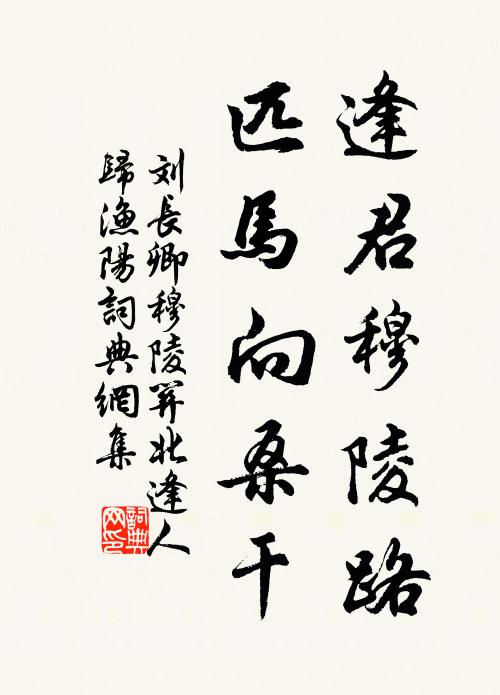 逢君穆陵路
匹馬向桑干
刘長卿穆陵関北逢人
歸漁陽詞典網集
詞典網印